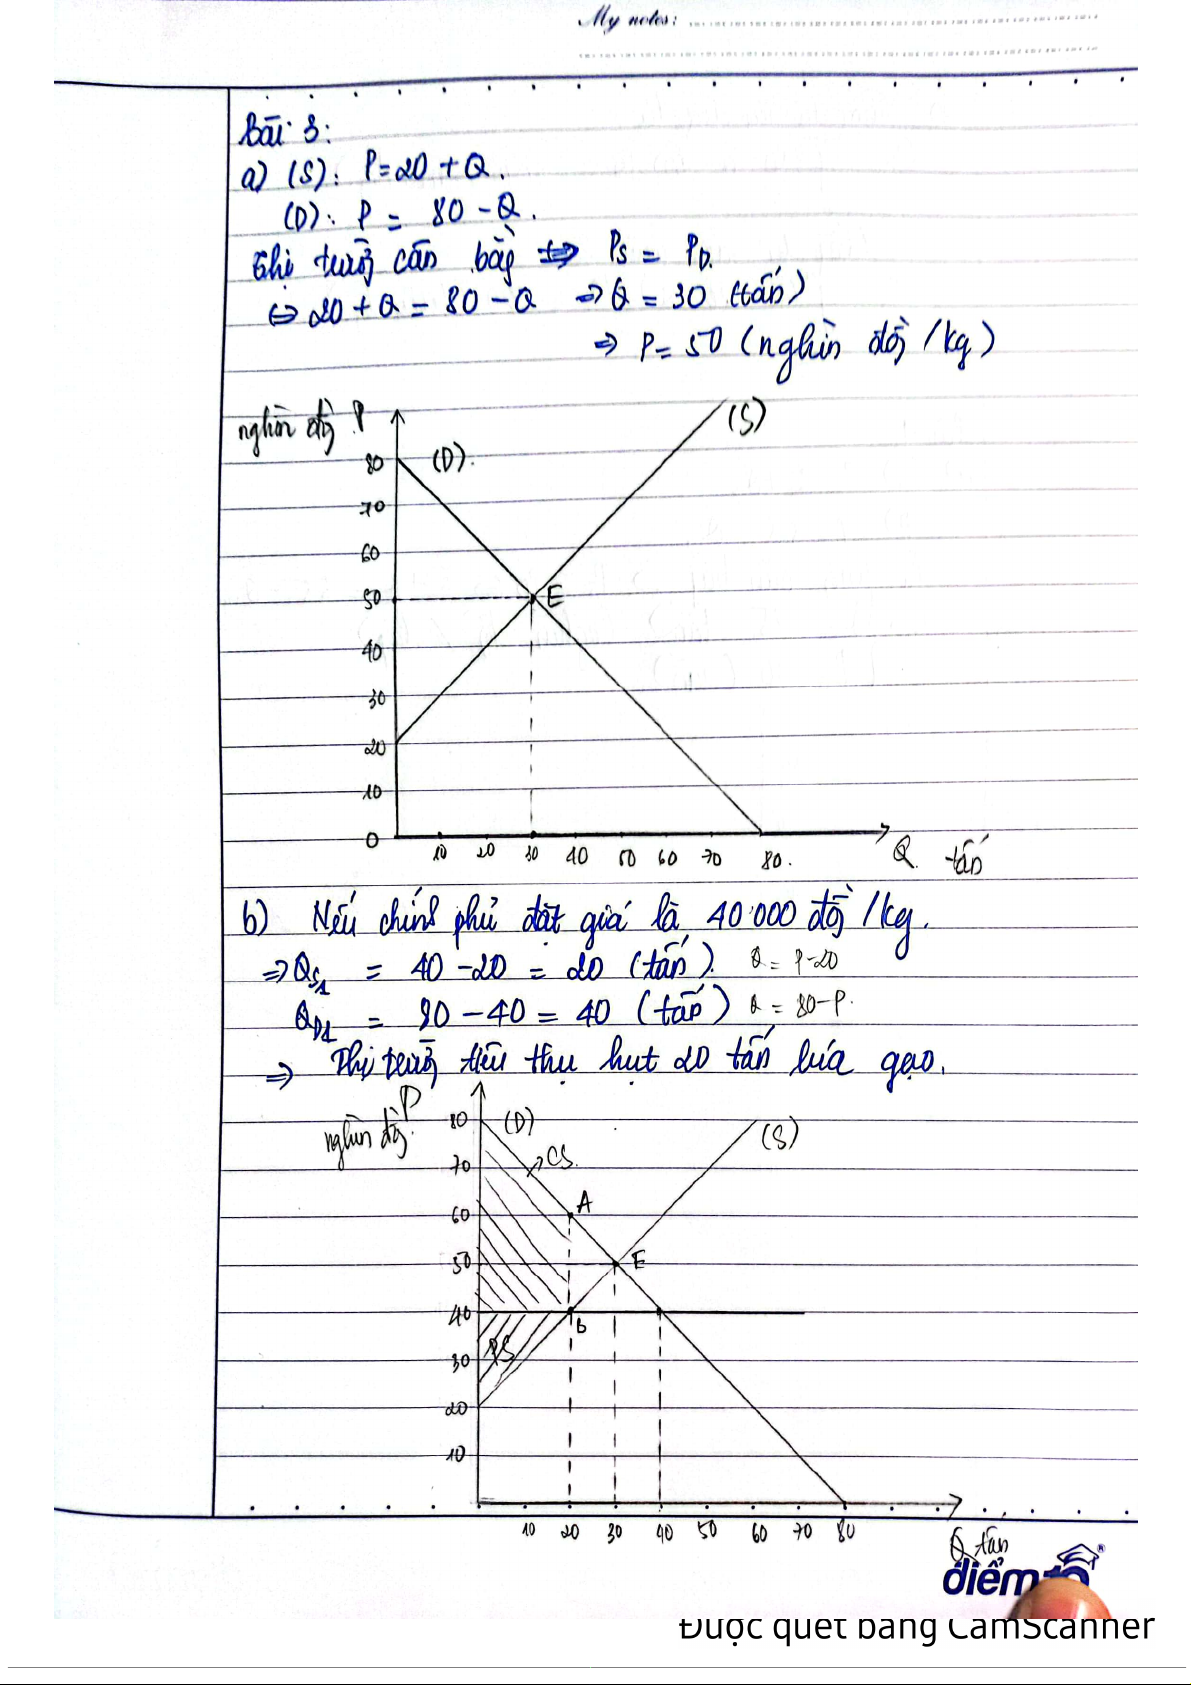 My notes:
Bài 3:
a) (S): P = 20 + Q.
(D): P = 80 - Q.
Thị trường cân bằng <=> Ps = PD.
<=> 20 + Q = 80 - Q => Q = 30 (tấn)
=> P = 50 (nghìn đồng /kg)
nghìn đồng P
(S)
80 (D).
70
60
50 E
40
30
20
10
0
10 20 30 40 50 60 70 80. Q tấn
b) Nếu chính phủ đặt giá là 40.000 đồng /kg.
=> QS1 = 40 - 20 = 20 (tấn). Q = P - 20
QD1 = 80 - 40 = 40 (tấn) Q = 80 - P.
=> Thị trường tiêu thụ hụt 20 tấn lúa gạo.
nghìn đồng P
80 (D) (S)
70 CS.
60 A
50 E
40 B
30 PS
20
10
10 20 30 40 50 60 70 80
Q tấn
điểm 10
Được quét bằng CamScanner